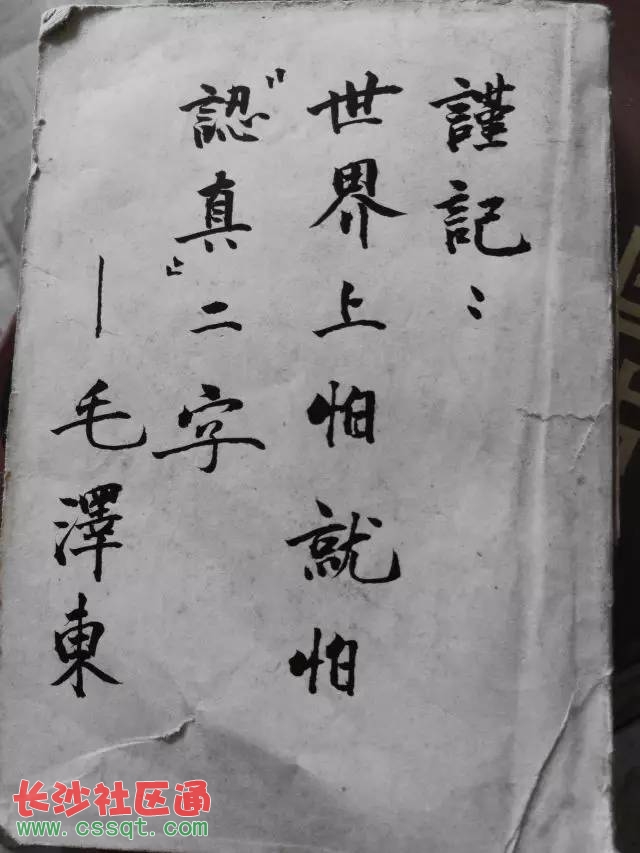 謹記：
世界上怕就怕
"認真"二字
—毛澤東
长沙社区通
www.cssqt.com